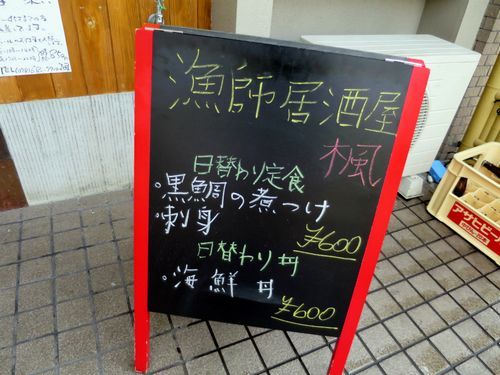 漁師居酒屋
楓
日替わり定食
・黒鯛の煮つけ
・刺身
¥600
日替わり丼
・海鮮丼
¥600
アサヒビール